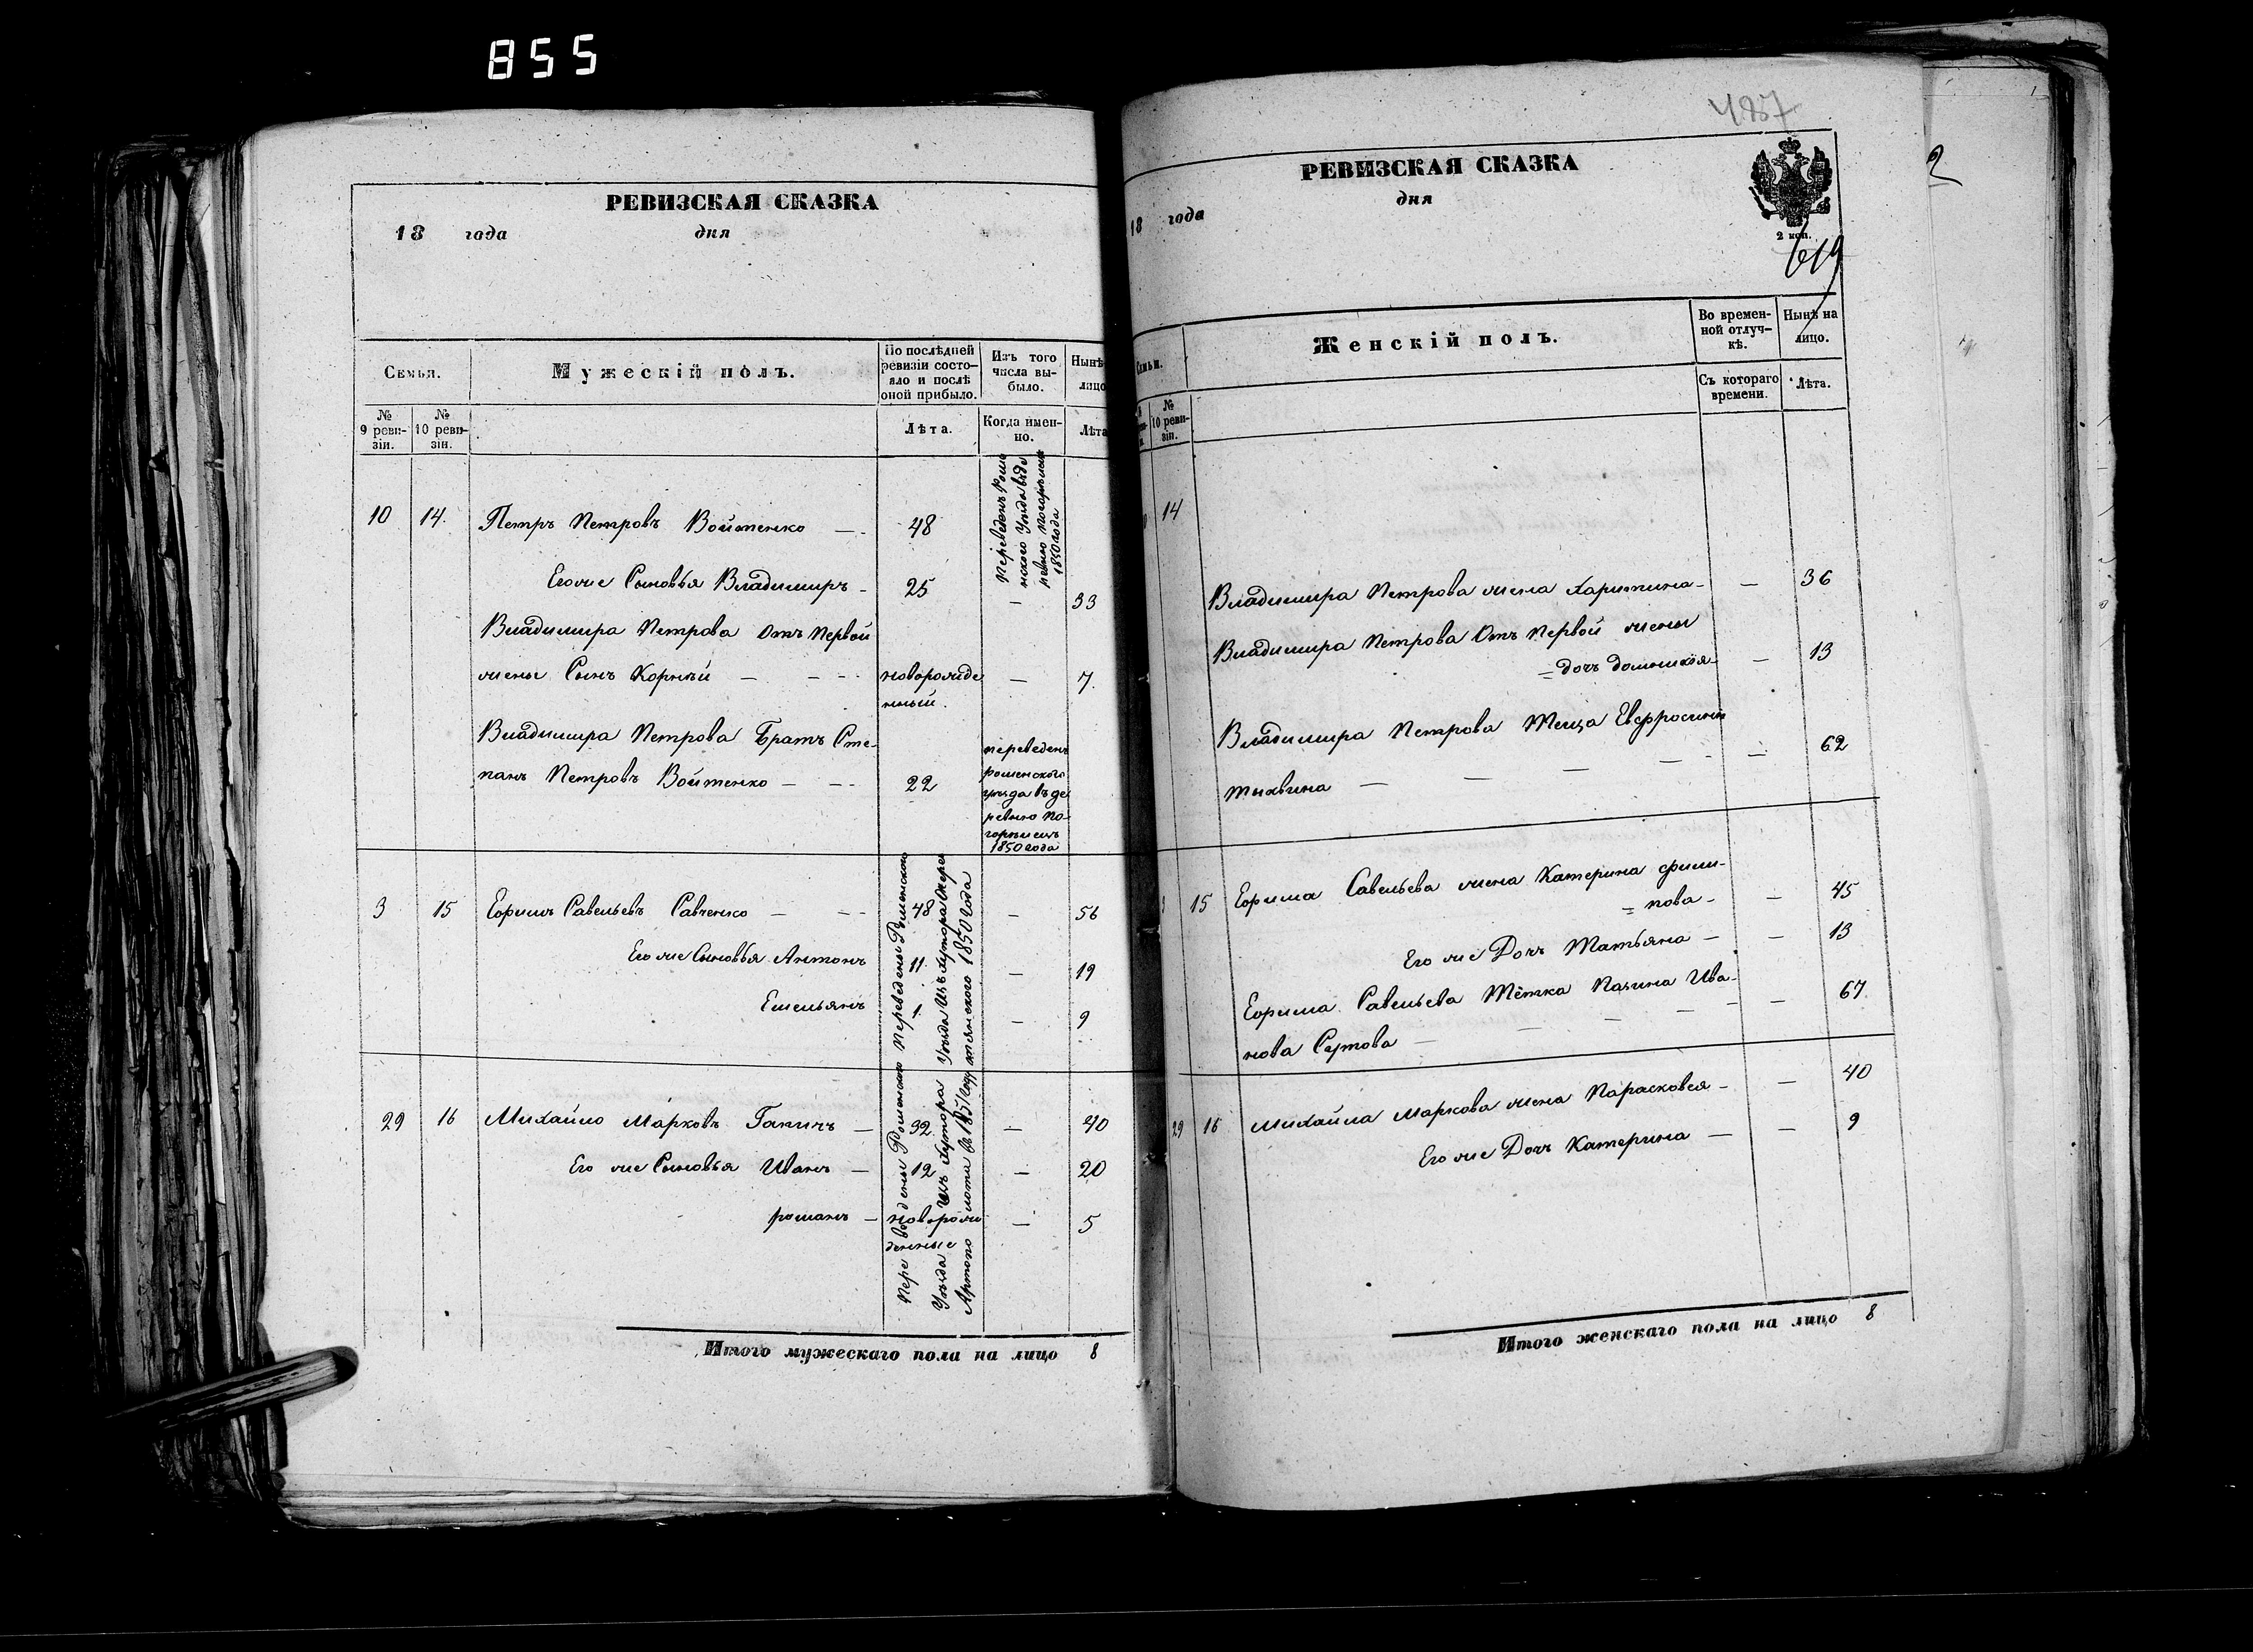 855
РЕВИЗСКАЯ СКАЗКА
18 года дня
Семья.
Мужескій полъ.
По послѣдней ревизіи состояло и послѣ оной прибыло.
Изъ того числа выбыло.
Нынѣ лицо
№ 9 ревизіи.
№ 10 ревизіи.
Лѣта.
Когда именно.
Лѣта
10 14. Петръ Петровъ Войтенко — 48
Переведенъ Роменского Уѣзда въ деревню
1850 года
Егоже Сыновья Владимиръ - 25 — 33
Владимира Петрова Отъ Первой
жены Сынъ Корнѣй — новорожде
нный. — 7.
Владимира Петрова Братъ Сте-
панъ Петровъ Войтенко — 22
переведенъ
роменского
уѣзда въ де
ревню По-
1850 года
3 15 Ефимъ Савельевъ Савченко — 48 — 56
Его же Сыновья Антонъ 11 — 19
Емельянъ 1 — 9
Переведены Роменского
Уѣзда Изъ Хутора
1850 года
29 16 Михайло Марковъ Гапичъ — 32 — 40
Его же Сыновья Иванъ — 12 — 20
романъ — новорож
денные — 5
Переведены Роменского
Уѣзда изъ Хутора
Итого мужескаго пола на лицо 8
487
2
РЕВИЗСКАЯ СКАЗКА
18 года дня
2 коп.
619
Семьи.
Женскій полъ.
Во временной отлучкѣ.
Нынѣ на лицо.
№ 10 ревизіи.
Съ котораго времени.
Лѣта.
14
Владимира Петрова жена Харитина — — 36
Владимира Петрова Отъ Первой жены
= дочь Домникія — — 13
Владимира Петрова Теща Евфросинія
Тыхвина — — — — — 62
15 Ефима Савельева жена Катерина фили-
= пова — — 45
Его же Дочь Татьяна — — 13
Ефима Савельева Тётка Ива-
нова — — — — 67
29 16 Михайла Маркова жена Парасковея — — 40
Его же Дочь Катерина — — 9
Итого женскаго пола на лицо 8